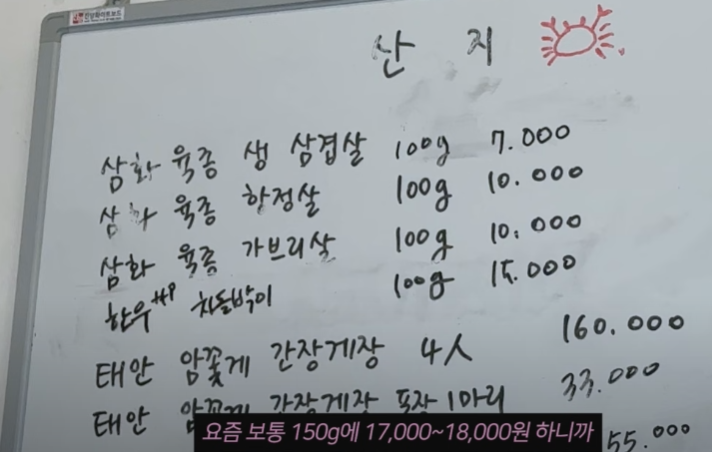 산지
삼화 육종 생 삼겹살 100g 7.000
삼화 육종 항정살 100g 10.000
삼화 육종 가브리살 100g 10.000
한우 차돌박이 100g 15.000
태안 암꽃게 간장게장 4人 160.000
태안 암꽃게 간장게장 포장 1마리 33.000
55.000
요즘 보통 150g에 17,000~18,000원 하니까